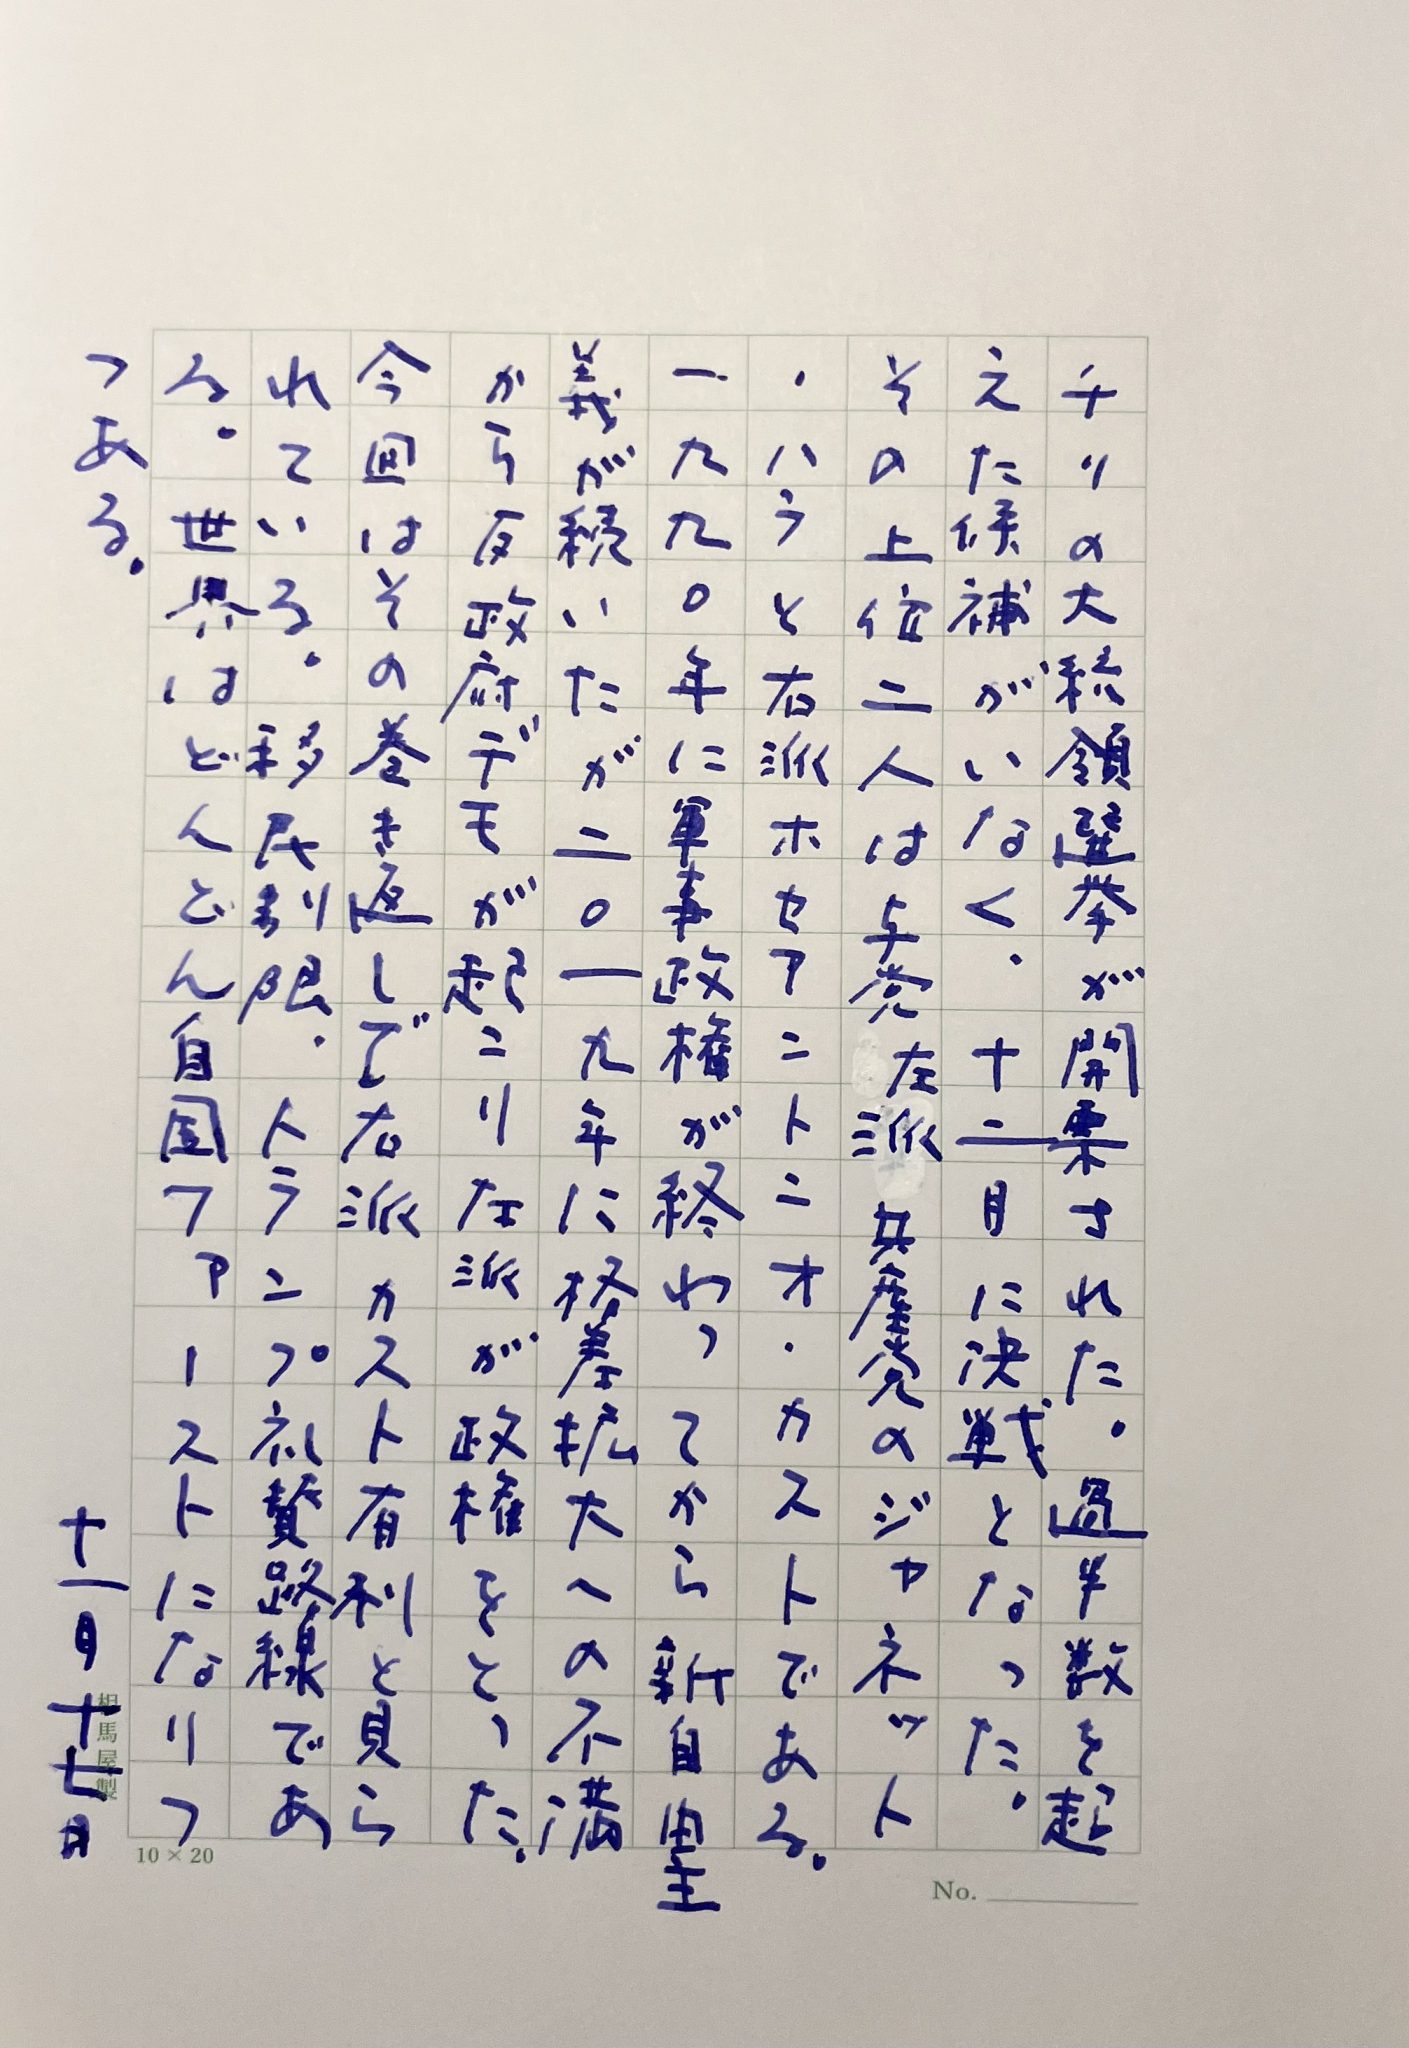 チリの大統領選挙が開票された。過半数を起
えた候補がいなく、十二月に決戦となった。
その上位二人は与党左派共産党のジャネット
・ハラと右派ホセアントニオ・カストである。
一九九〇年に軍事政権が終わってから新自由主
義が続いたが二〇一九年に格差拡大への不満
から反政府デモが起こり左派が政権をとった。
今回はその巻き返しで右派カスト有利と見ら
れている。移民制限、トランプ礼賛路線であ
る。世界はどんどん自国ファーストになりつ
つある。
十一月十七日
相馬屋製
10×20
No.